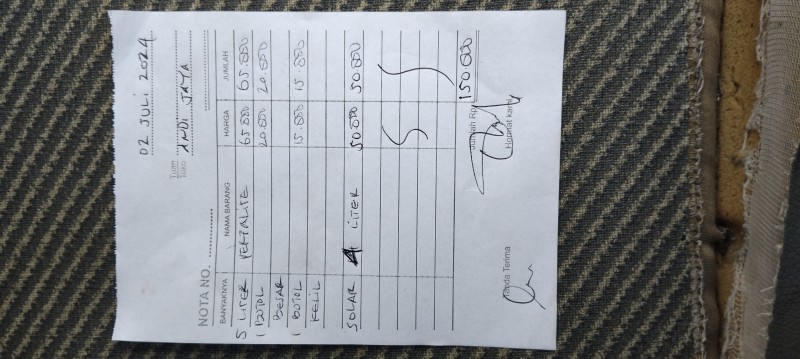 02 JULI 2024
Tuan
Toko ANDI JAYA
NOTA NO.
BANYAKNYA NAMA BARANG HARGA JUMLAH
5 LITER PERTALITE 65.000 65.000
1 BOTOL 20.000 20.000
BESAR
1 BOTOL 15.000 15.000
KECIL
SOLAR 4 LITER 50.000 50.000
Jumlah Rp. 150.000
Tanda Terima Hormat kami,